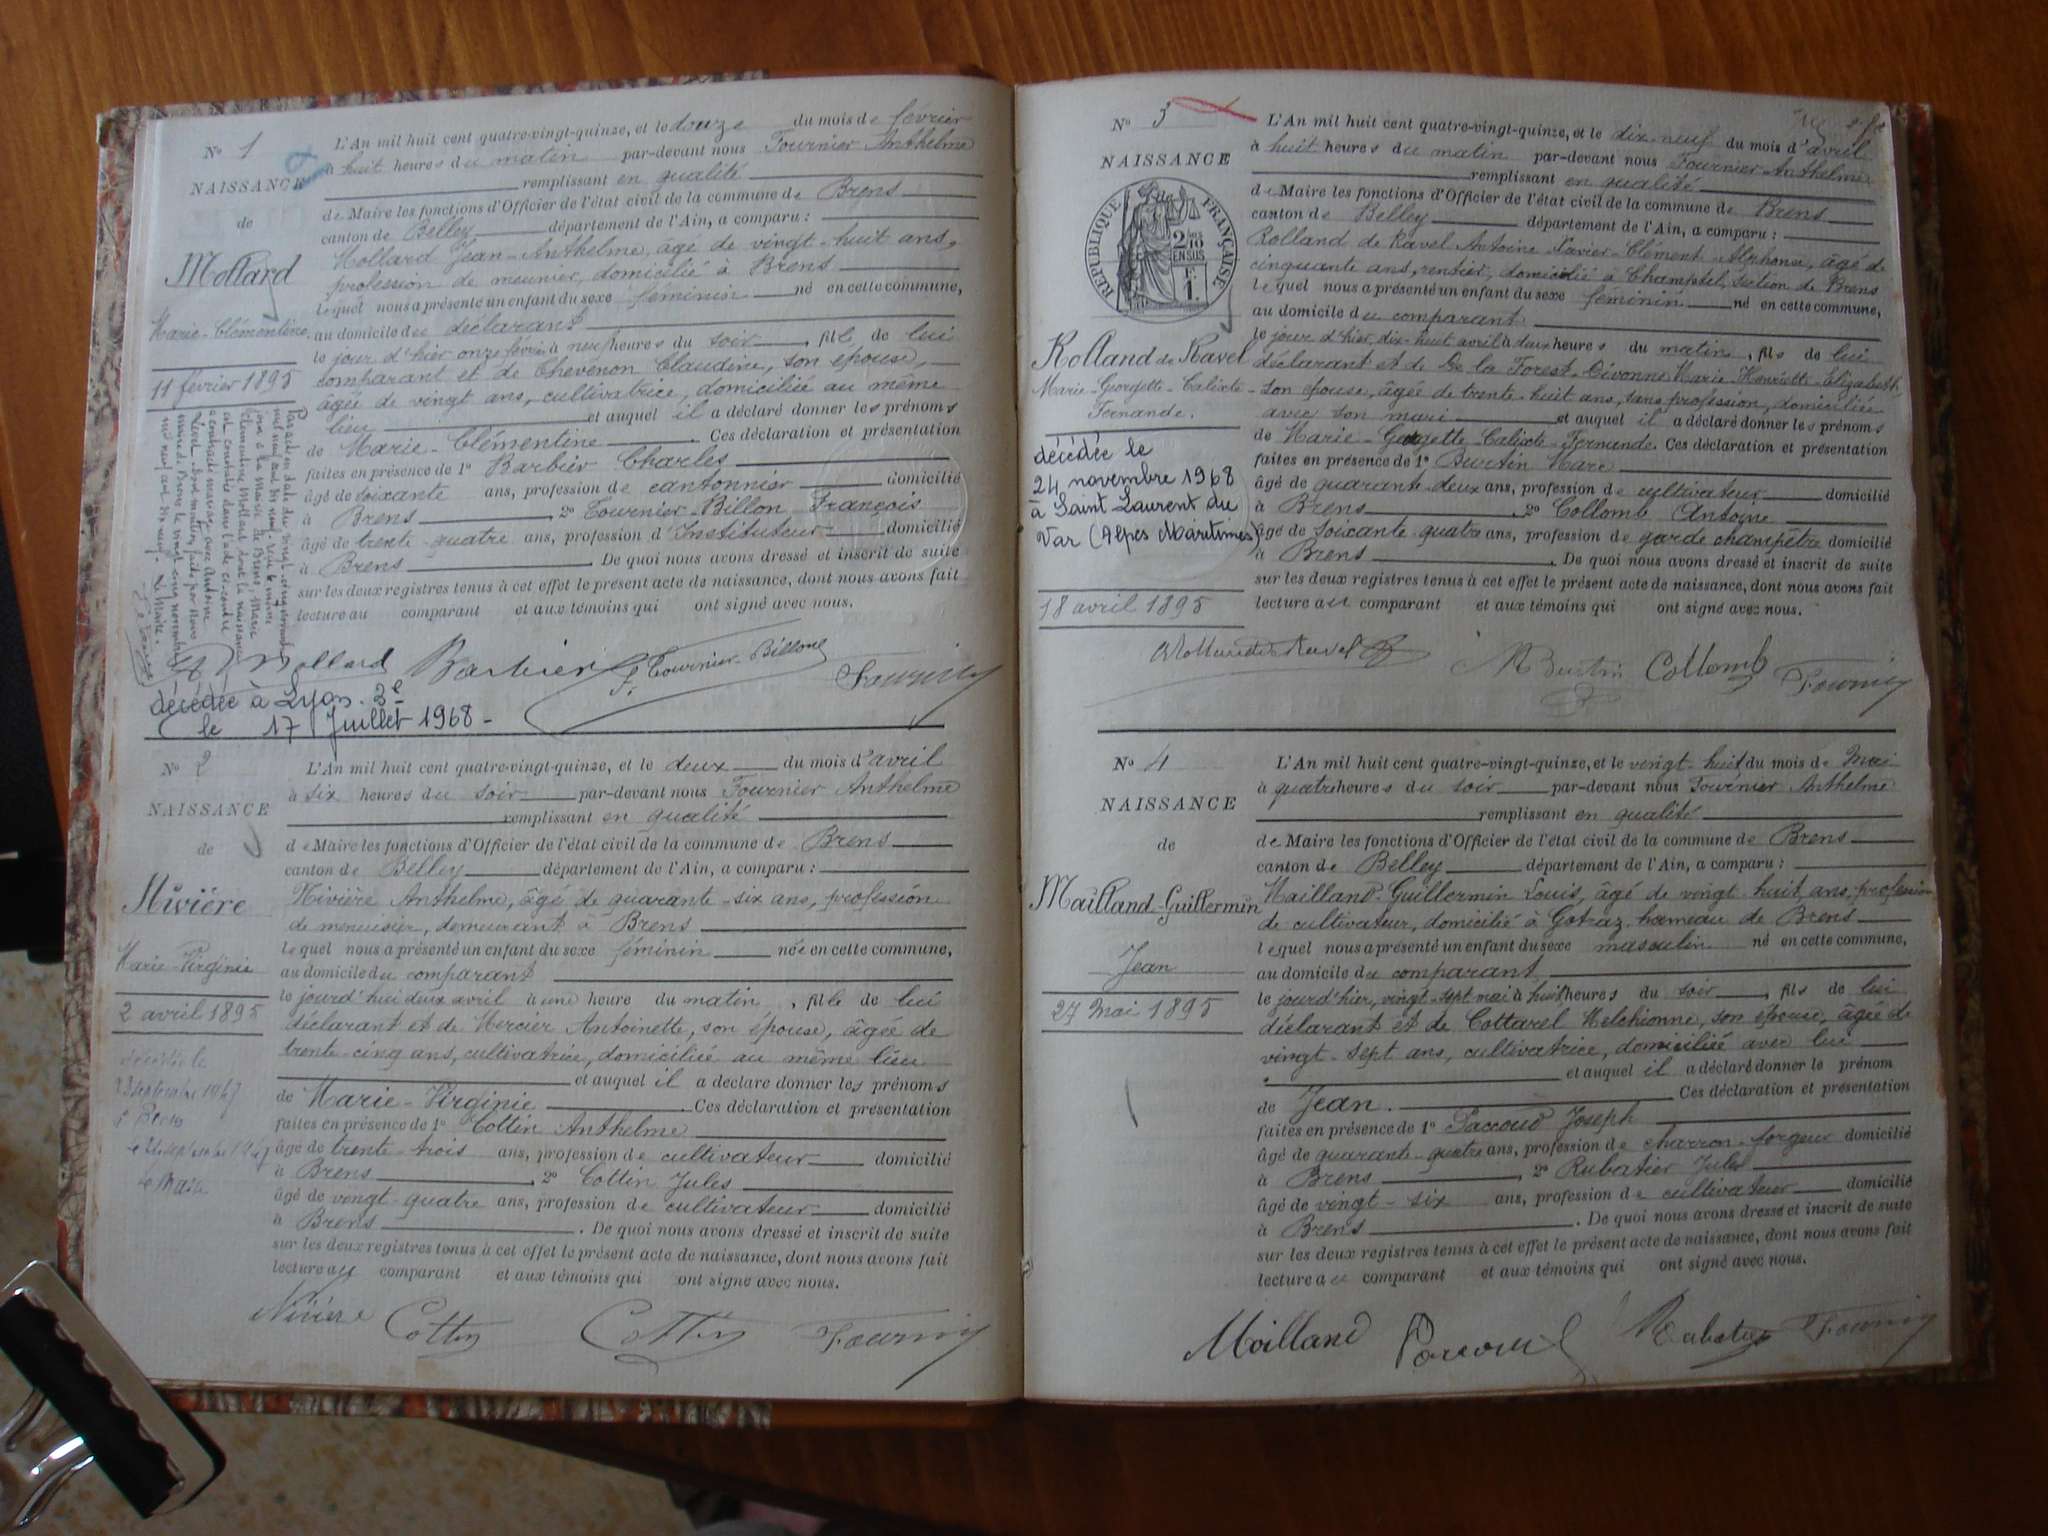 N° 1
NAISSANCE
de
Mollard
Marie-Clémentine
11 février 1895
L'An mil huit cent quatre-vingt-quinze, et le douze du mois de février
à huit heures du matin par-devant nous Fournier Anthelme
remplissant en qualité
de Maire les fonctions d'Officier de l'état civil de la commune de Brens
canton de Belley département de l'Ain, a comparu :
Mollard Jean-Anthelme, âgé de vingt-huit ans,
profession de meunier, domicilié à Brens
lequel nous a présenté un enfant du sexe féminin né en cette commune,
au domicile du déclarant
le jour d'hier onze février à neuf heures du soir, fille de lui
comparant et de Chevenon Claudine, son épouse,
âgée de vingt ans, cultivatrice, domiciliée au même
lieu et auquel il a déclaré donner les prénoms
de Marie-Clémentine. Ces déclaration et présentation
faites en présence de 1° Barbier Charles
âgé de soixante ans, profession de cantonnier domicilié
à Brens, 2° Tournier-Billon François
âgé de trente-quatre ans, profession d'Instituteur domicilié
à Brens. De quoi nous avons dressé et inscrit de suite
sur les deux registres tenus à cet effet le présent acte de naissance, dont nous avons fait
lecture au comparant et aux témoins qui ont signé avec nous.
Mollard Barbier F. Tournier-Billon Fournier
décédée à Lyon 3e
le 17 Juillet 1968 -
N° 2
NAISSANCE
de
Nivière
Marie-Virginie
2 avril 1895
L'An mil huit cent quatre-vingt-quinze, et le deux du mois d'avril
à six heures du soir par-devant nous Fournier Anthelme
remplissant en qualité
de Maire les fonctions d'Officier de l'état civil de la commune de Brens
canton de Belley département de l'Ain, a comparu :
Nivière Anthelme, âgé de quarante-six ans, profession
de menuisier, demeurant à Brens
lequel nous a présenté un enfant du sexe féminin née en cette commune,
au domicile du comparant
le jourd'hui deux avril à une heure du matin, fille de lui
déclarant et de Mercier Antoinette, son épouse, âgée de
trente-cinq ans, cultivatrice, domiciliée au même lieu
et auquel il a déclaré donner les prénoms
de Marie-Virginie. Ces déclaration et présentation
faites en présence de 1° Cottin Anthelme
âgé de trente-trois ans, profession de cultivateur domicilié
à Brens, 2° Cottin Jules
âgé de vingt-quatre ans, profession de cultivateur domicilié
à Brens. De quoi nous avons dressé et inscrit de suite
sur les deux registres tenus à cet effet le présent acte de naissance, dont nous avons fait
lecture au comparant et aux témoins qui ont signé avec nous.
Nivière Cottin Cottin Fournier
N° 3
NAISSANCE
RÉPUBLIQUE FRANÇAISE
2/10
EN SUS
Rolland de Ravel
Marie-Georgette-Calixte-
Fernande.
décédée le
24 novembre 1968
à Saint Laurent du
Var (Alpes Maritimes)
18 avril 1895
L'An mil huit cent quatre-vingt-quinze, et le dix-neuf du mois d'avril
à huit heures du matin par-devant nous Fournier Anthelme
remplissant en qualité
de Maire les fonctions d'Officier de l'état civil de la commune de Brens
canton de Belley département de l'Ain, a comparu :
Rolland de Ravel Antoine Xavier-Clément-Alphonse, âgé de
cinquante ans, rentier, domicilié à Champtel, section de Brens
lequel nous a présenté un enfant du sexe féminin né en cette commune,
au domicile du comparant
le jour d'hier, dix-huit avril à deux heures du matin, fils de lui
déclarant et de De la Forest-Divonne Marie-Henriette-Elizabeth,
son épouse, âgée de trente-huit ans, sans profession, domiciliée
avec son mari et auquel il a déclaré donner les prénoms
de Marie-Georgette-Calixte-Fernande. Ces déclaration et présentation
faites en présence de 1° Burtin Marc
âgé de quarante-deux ans, profession de cultivateur domicilié
à Brens, 2° Collomb Antoine
âgé de soixante-quatre ans, profession de garde champêtre domicilié
à Brens. De quoi nous avons dressé et inscrit de suite
sur les deux registres tenus à cet effet le présent acte de naissance, dont nous avons fait
lecture au comparant et aux témoins qui ont signé avec nous.
M Burtin Collomb Fournier
N° 4
NAISSANCE
de
Mailland-Guillermin
Jean
27 Mai 1895
L'An mil huit cent quatre-vingt-quinze, et le vingt-huit du mois de Mai
à quatre heures du soir par-devant nous Fournier Anthelme
remplissant en qualité
de Maire les fonctions d'Officier de l'état civil de la commune de Brens
canton de Belley département de l'Ain, a comparu :
Mailland-Guillermin Louis, âgé de vingt-huit ans, profession
de cultivateur, domicilié à Gotraz, hameau de Brens
lequel nous a présenté un enfant du sexe masculin né en cette commune,
au domicile du comparant
le jourd'hier, vingt-sept mai à huit heures du soir, fils de lui
déclarant et de Cottarel Melchionne, son épouse, âgée de
vingt-sept ans, cultivatrice, domiciliée avec lui
et auquel il a déclaré donner le prénom
de Jean. Ces déclaration et présentation
faites en présence de 1° Paccoud Joseph
âgé de quarante-quatre ans, profession de charron-forgeur domicilié
à Brens, 2° Rubatier Jules
âgé de vingt-six ans, profession de cultivateur domicilié
à Brens. De quoi nous avons dressé et inscrit de suite
sur les deux registres tenus à cet effet le présent acte de naissance, dont nous avons fait
lecture au comparant et aux témoins qui ont signé avec nous.
Mailland Paccoud Rubatier Fournier